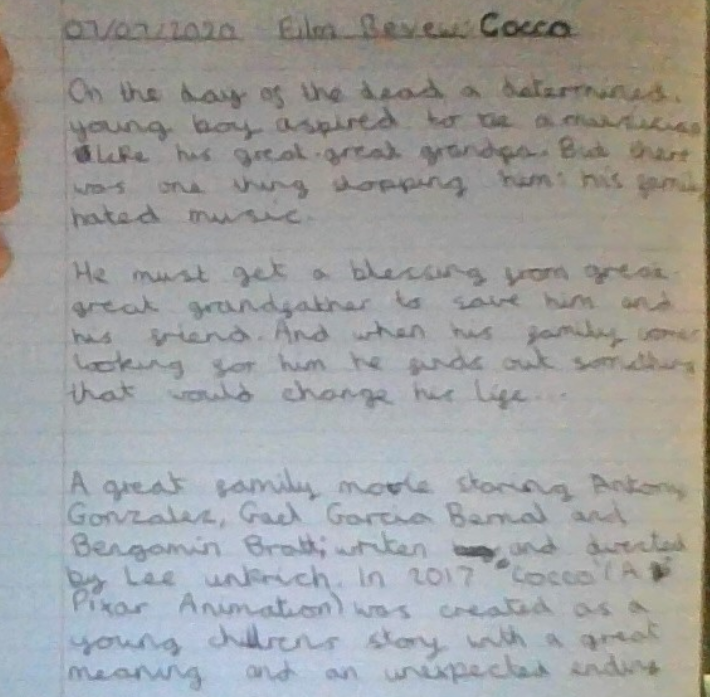 07/07/2020 Film Revew: Cocco
On the day of the dead a determined
young boy aspired to be a
like his great-great grandpa. But there
was one thing stopping him: his family
hated music.
He must get a blessing from great
great grandfather to save him and
his friend. And when his family comes
looking for him he finds out something
that would change his life...
A great family movie staring Antony
Gonzalez, Gael Garcia Bernal and
Bengamin Bratt; writen and directed
by Lee unkrich. In 2017 "Cocco" (A
Pixar Animation) was created as a
young childrens story with a great
meaning and an unexpected ending